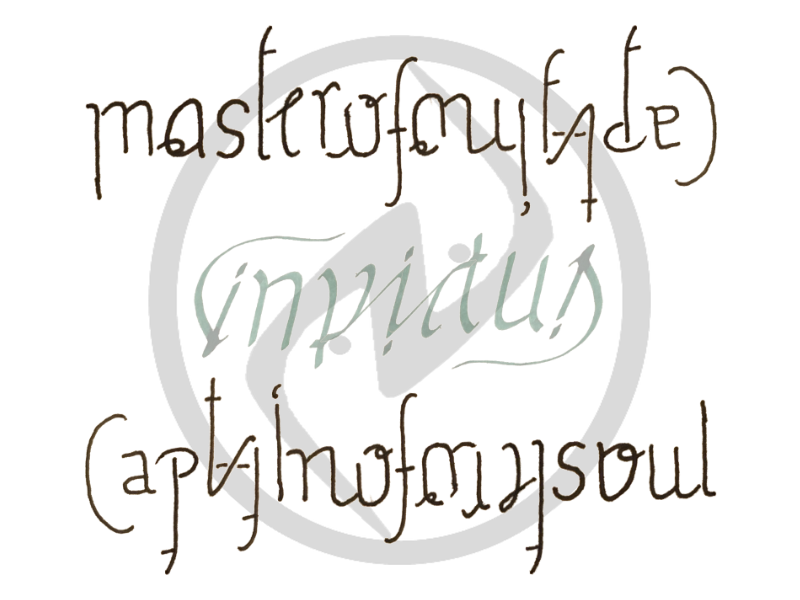 masterofmyfate
invictus
Captainofmysoul